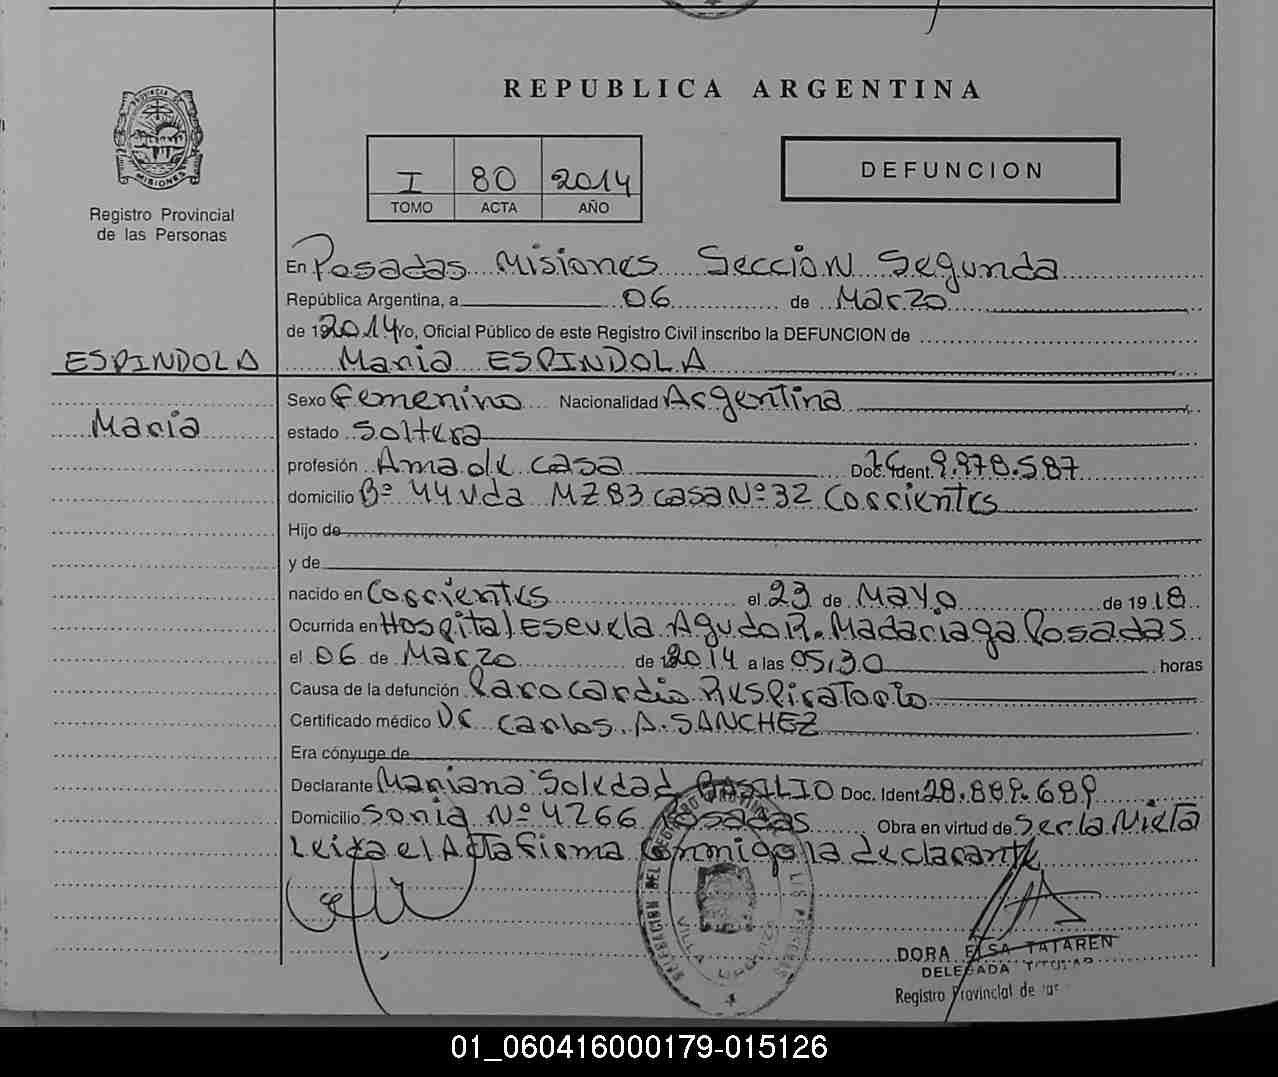 REPUBLICA ARGENTINA
PROVINCIA DE
MISIONES
Registro Provincial
de las Personas
I 80 2014
TOMO ACTA AÑO
DEFUNCION
En Posadas Misiones Seccion Segunda
República Argentina, a 06 de Marzo
de 19 2014 Yo, Oficial Público de este Registro Civil inscribo la DEFUNCION de
ESPINDOLA Maria ESPINDOLA
Sexo Femenino Nacionalidad Argentina
Maria
estado Soltera
profesión Ama de casa Doc. Ident. 9.978.587
domicilio Bº 44 Vda MZ 83 casa Nº 32 Corrientes
Hijo de
y de
nacido en Corrientes el 23 de Mayo de 1918
Ocurrida en Hospital Escuela Agudo R. Madariaga Posadas
el 06 de Marzo de 2014 a las 05,30 horas
Causa de la defunción Paro Cardio Respiratorio
Certificado médico Dr Carlos A. SANCHEZ
Era cónyuge de
Declarante Mariana Soledad BASILIO Doc. Ident. 28.889.689
Domicilio Sonia Nº 4266 Posadas Obra en virtud de Ser la Nieta
Leida el Acta firma Conmigo la declarante
VILLA URQUIZA
DORA ELSA TATAREN
DELEGADA TITULAR
Registro Provincial de las
01_060416000179-015126